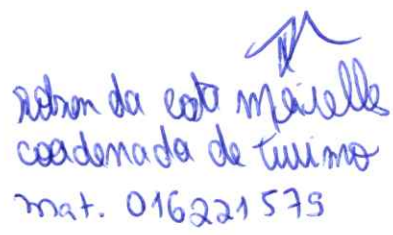 Robson da costa Meirelles
coordenada de turismo
mat. 016221579